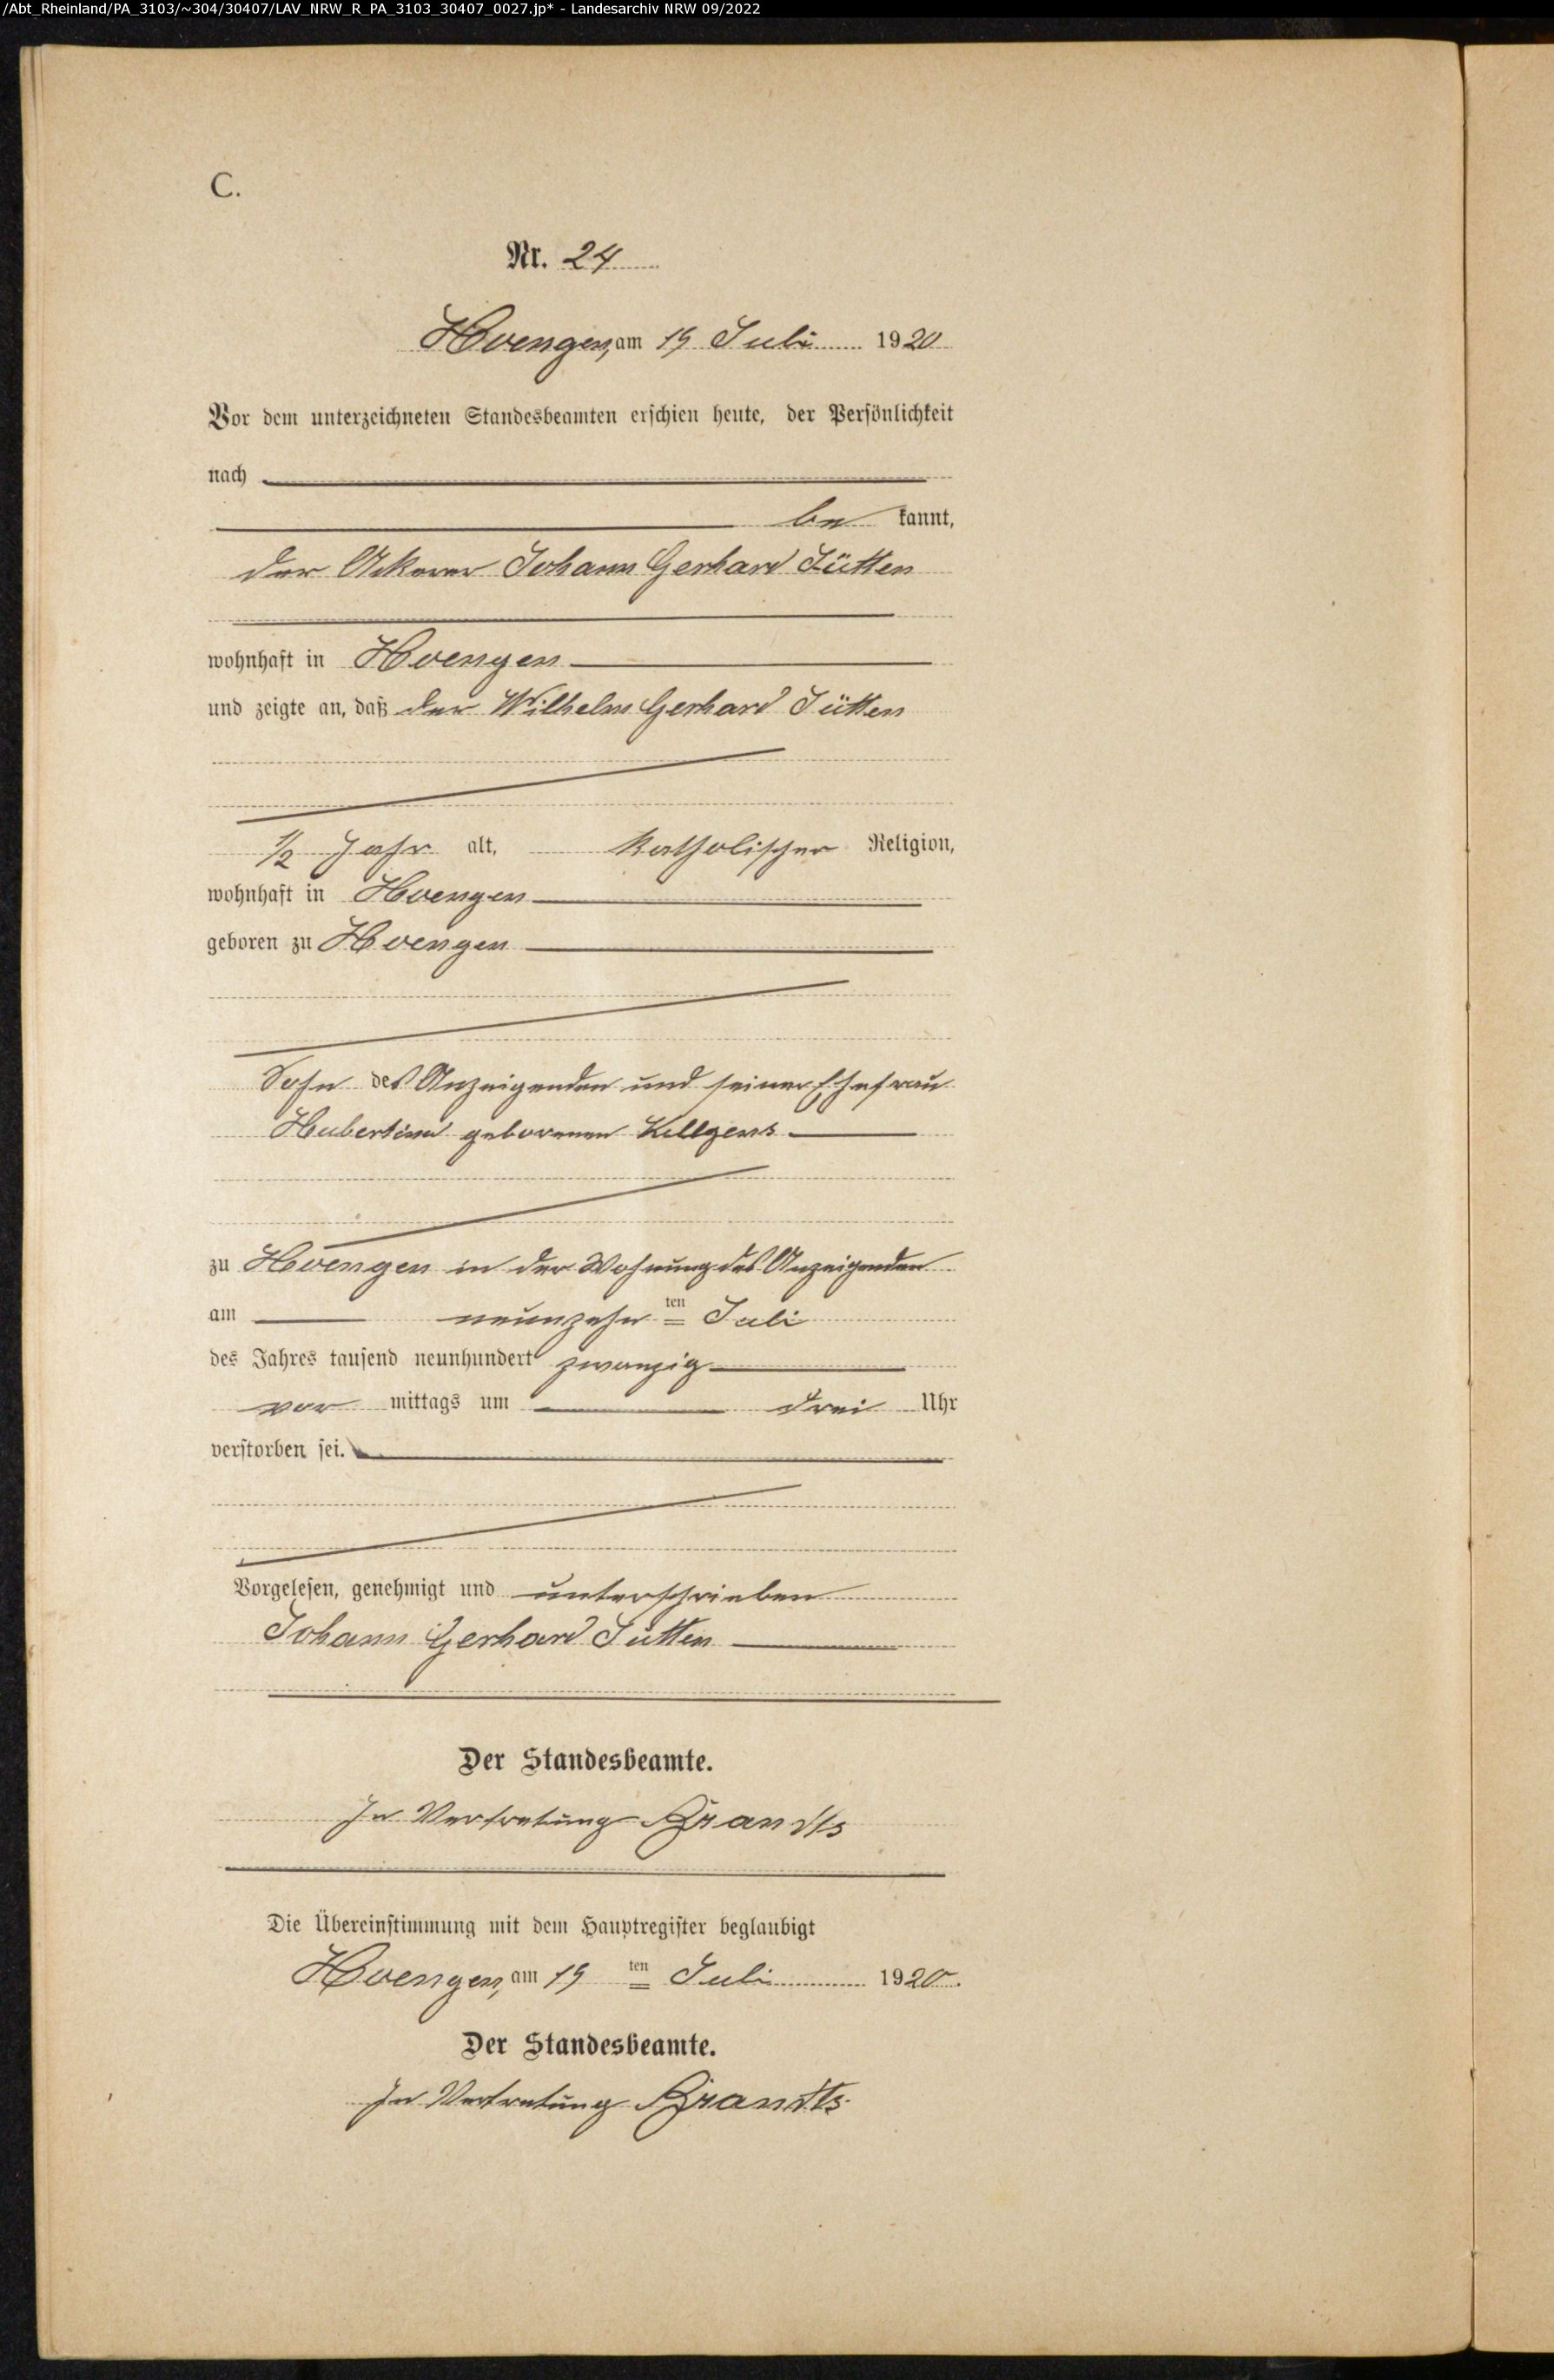 /Abt_Rheinland/PA_3103/~304/30407/LAV_NRW_R_PA_3103_30407_0027.jp* - Landesarchiv NRW 09/2022
C.
Nr. 24
Hoengen, am 19 Juli 1920
Vor dem unterzeichneten Standesbeamten erschien heute, der Persönlichkeit
nach
be kannt,
der Ackerer Johann Gerhard Jütten
wohnhaft in Hoengen
und zeigte an, daß der Wilhelm Gerhard Jütten
1/2 Jahr alt, katholischer Religion,
wohnhaft in Hoengen
geboren zu Hoengen
Sohn des Anzeigenden und seiner Ehefrau
Hubertina geborenen Killgens
zu Hoengen in der Wohnung des Anzeigenden
am neunzehn ten Juli
des Jahres tausend neunhundert zwanzig
vor mittags um drei Uhr
verstorben sei.
Vorgelesen, genehmigt und unterschrieben
Johann Gerhard Jütten
Der Standesbeamte.
In Vertretung Brandts
Die Übereinstimmung mit dem Hauptregister beglaubigt
Hoengen, am 19 ten Juli 1920.
Der Standesbeamte.
In Vertretung Brandts